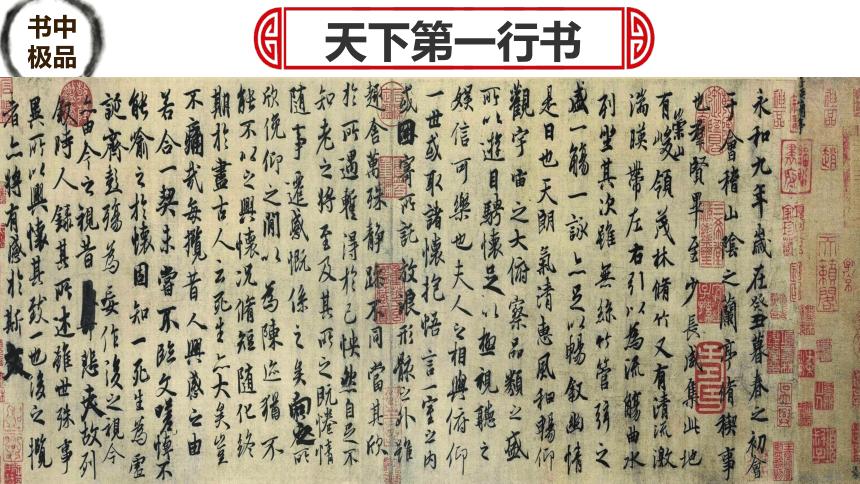 书中
极品
天下第一行书
永和九年歲在癸丑暮春之初會
于會稽山陰之蘭亭脩稧事
也羣賢畢至少長咸集此地
有崇山峻領茂林脩竹又有清流激
湍暎帶左右引以為流觴曲水
列坐其次雖無絲竹管弦之
盛一觴一詠亦足以暢叙幽情
是日也天朗氣清惠風和暢仰
觀宇宙之大俯察品類之盛
所以遊目騁懷足以極視聽之
娛信可樂也夫人之相與俯仰
一世或取諸懷抱悟言一室之內
或因寄所託放浪形骸之外雖
趣舍萬殊靜躁不同當其欣
於所遇暫得於己怏然自足不
知老之將至及其所之既惓情
隨事遷感慨係之矣向之所
欣俛仰之間以為陳迹猶不
能不以之興懷況脩短隨化終
期於盡古人云死生亦大矣豈
不痛哉每攬昔人興感之由
若合一契未嘗不臨文嗟悼不
能喻之於懷固知一死生為虛
誕齊彭殤為妄作後之視今
亦由今之視昔悲夫故列
叙時人錄其所述雖世殊事
異所以興懷其致一也後之攬
者亦將有感於斯文